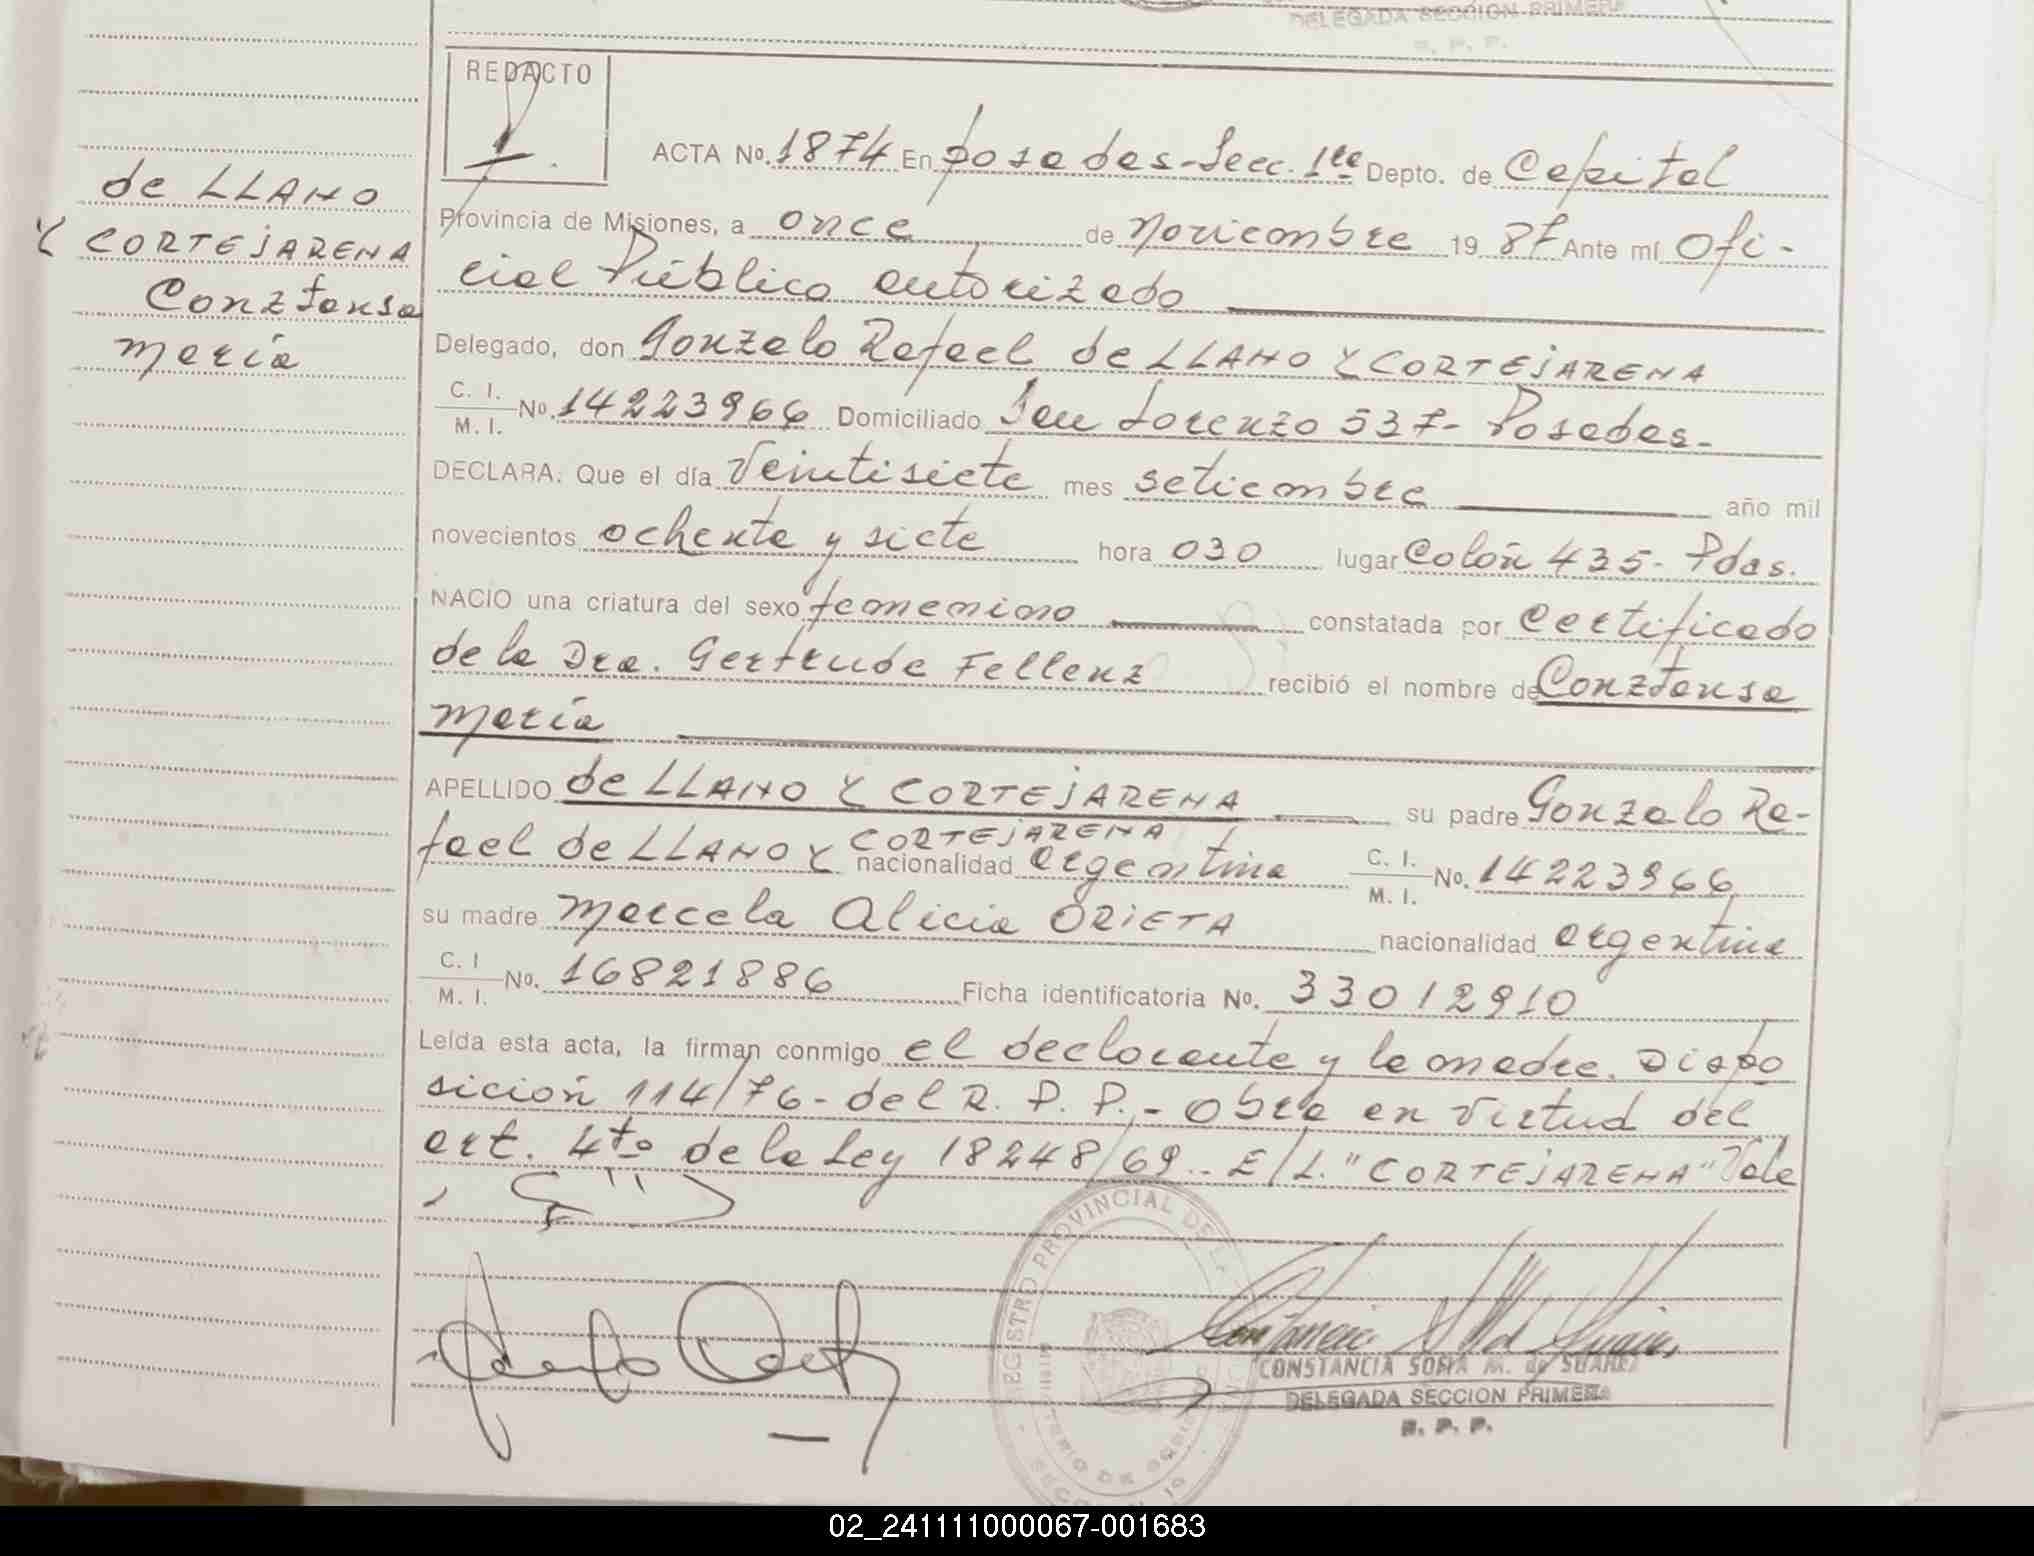 DELEGADA SECCION PRIMERA
R. P. P.
REDACTO
de LLANO
Y CORTEJARENA
Conztansa
María
ACTA No. 1874 En Posadas-Secc. 1ra Depto. de Capital
Provincia de Misiones, a once de noviembre 19 87 Ante mí Ofi-
cial Público autorizado
Delegado, don Gonzalo Rafael de LLANO Y CORTEJARENA
C. I.
M. I. No. 14223966 Domiciliado San Lorenzo 537- Posadas-
DECLARA: Que el día Veintisiete mes setiembre año mil
novecientos ochenta y siete hora 030 lugar Colón 435- Pdas.
NACIO una criatura del sexo femenino constatada por Certificado
de la Dra. Gertrude Fellenz recibió el nombre de Conztansa
María
APELLIDO de LLANO Y CORTEJARENA su padre Gonzalo Ra-
CORTEJARENA
fael de LLANO Y nacionalidad argentina C. I. M. I. No. 14223966
su madre Marcela Alicia ORIETA nacionalidad argentina
C. I
M. I. No. 16821886 Ficha identificatoria No. 33012910
Leída esta acta, la firman conmigo el declarante y la madre. Dispo
sición 114/76- del R. P. P.- Obra en virtud del
art. 4to de la Ley 18248/69.. E/L. "CORTEJARENA" Vale
REGISTRO PROVINCIAL DE LA
CONSTANCIA SOFIA M. de SUAREZ
DELEGADA SECCION PRIMERA
R. P. P.
02_241111000067-001683